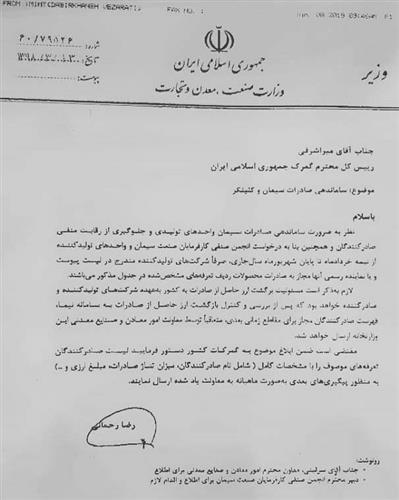 FROM :MIMT(DABIRKHANEH VEZARATI) FAX NO. : Jun. 08 2019 P1
شماره: ۶۰/۷۹۵۲۶
تاریخ: ۱۳۹۸/۰۳/۱۳
پیوست:
جمهوری اسلامی ایران
وزارت صنعت، معدن و تجارت
وزیر
جناب آقای میراشرفی
رییس کل محترم گمرک جمهوری اسلامی ایران
موضوع: ساماندهی صادرات سیمان و کلینکر
باسلام
نظر به ضرورت ساماندهی صادرات سیمان واحدهای تولیدی و جلوگیری از رقابت منفی
صادرکنندگان و همچنین بنا به درخواست انجمن صنفی کارفرمایان صنعت سیمان و واحدهای تولیدکننده
از نیمه خردادماه تا پایان شهریورماه سال‌جاری، صرفاً شرکت‌های تولیدکننده مندرج در لیست پیوست
و یا نماینده رسمی آنها مجاز به صادرات محصولات ردیف تعرفه‌های مشخص‌شده در جدول مذکور می‌باشند.
لازم به‌ذکر است مسئولیت برگشت ارز حاصل از صادرات به کشور به‌عهده شرکت‌های تولیدکننده و
صادرکننده خواهد بود که پس از بررسی و کنترل بازگشت ارز حاصل از صادرات به سامانه نیما،
فهرست صادرکنندگان مجاز برای مقاطع زمانی بعدی، متعاقباً توسط معاونت امور معادن و صنایع معدنی این
وزارتخانه ارسال خواهد شد.
مقتضی است ضمن ابلاغ موضوع به گمرکات کشور دستور فرمایید لیست صادرکنندگان
تعرفه‌های موصوف را با مشخصات کامل ( شامل نام صادرکنندگان، میزان تناژ صادرات، مبلغ ارزی و ..)
به منظور پیگیری‌های بعدی به‌صورت ماهیانه به معاونت یاد شده ارسال نمایند.
رضا رحمانی
رونوشت:
جناب آقای سرقینی، معاون محترم امور معادن و صنایع معدنی برای اطلاع
دبیر محترم انجمن صنفی کارفرمایان صنعت سیمان برای اطلاع و اقدام لازم